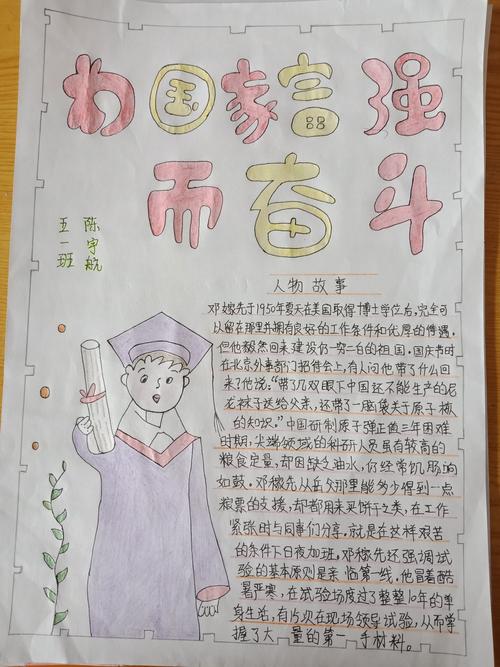 为国家富强
而奋斗
陈宇航
五一班
人物故事
邓稼先于1950年夏天在美国取得博士学位后,完全可
以留在那里并拥有良好的工作条件和优厚的待遇。
但他毅然回来建设仍一穷二白的祖国。国庆节时
在北京外事部门招待会上,有人问他带了什么回
来?他说:"带了几双眼下中国还不能生产的尼
龙袜子送给父亲,还带了一脑袋关于原子核
的知识。"中国研制原子弹正值三年困难
时期,尖端领域的科研人员虽有较高的
粮食定量,却因缺乏油水,仍经常饥肠响
如鼓。邓稼先从岳父那里能多少得到一点
粮票的支援,却都用来买饼干之类,在工作
紧张时与同事们分享。就是在这样艰苦
的条件下日夜加班。邓稼先还强调试
验的基本原则是亲临第一线,他冒着酷
暑严寒,在试验场度过了整整10年的单
身生活,有15次在现场领导试验,从而掌
握了大量的第一手材料。